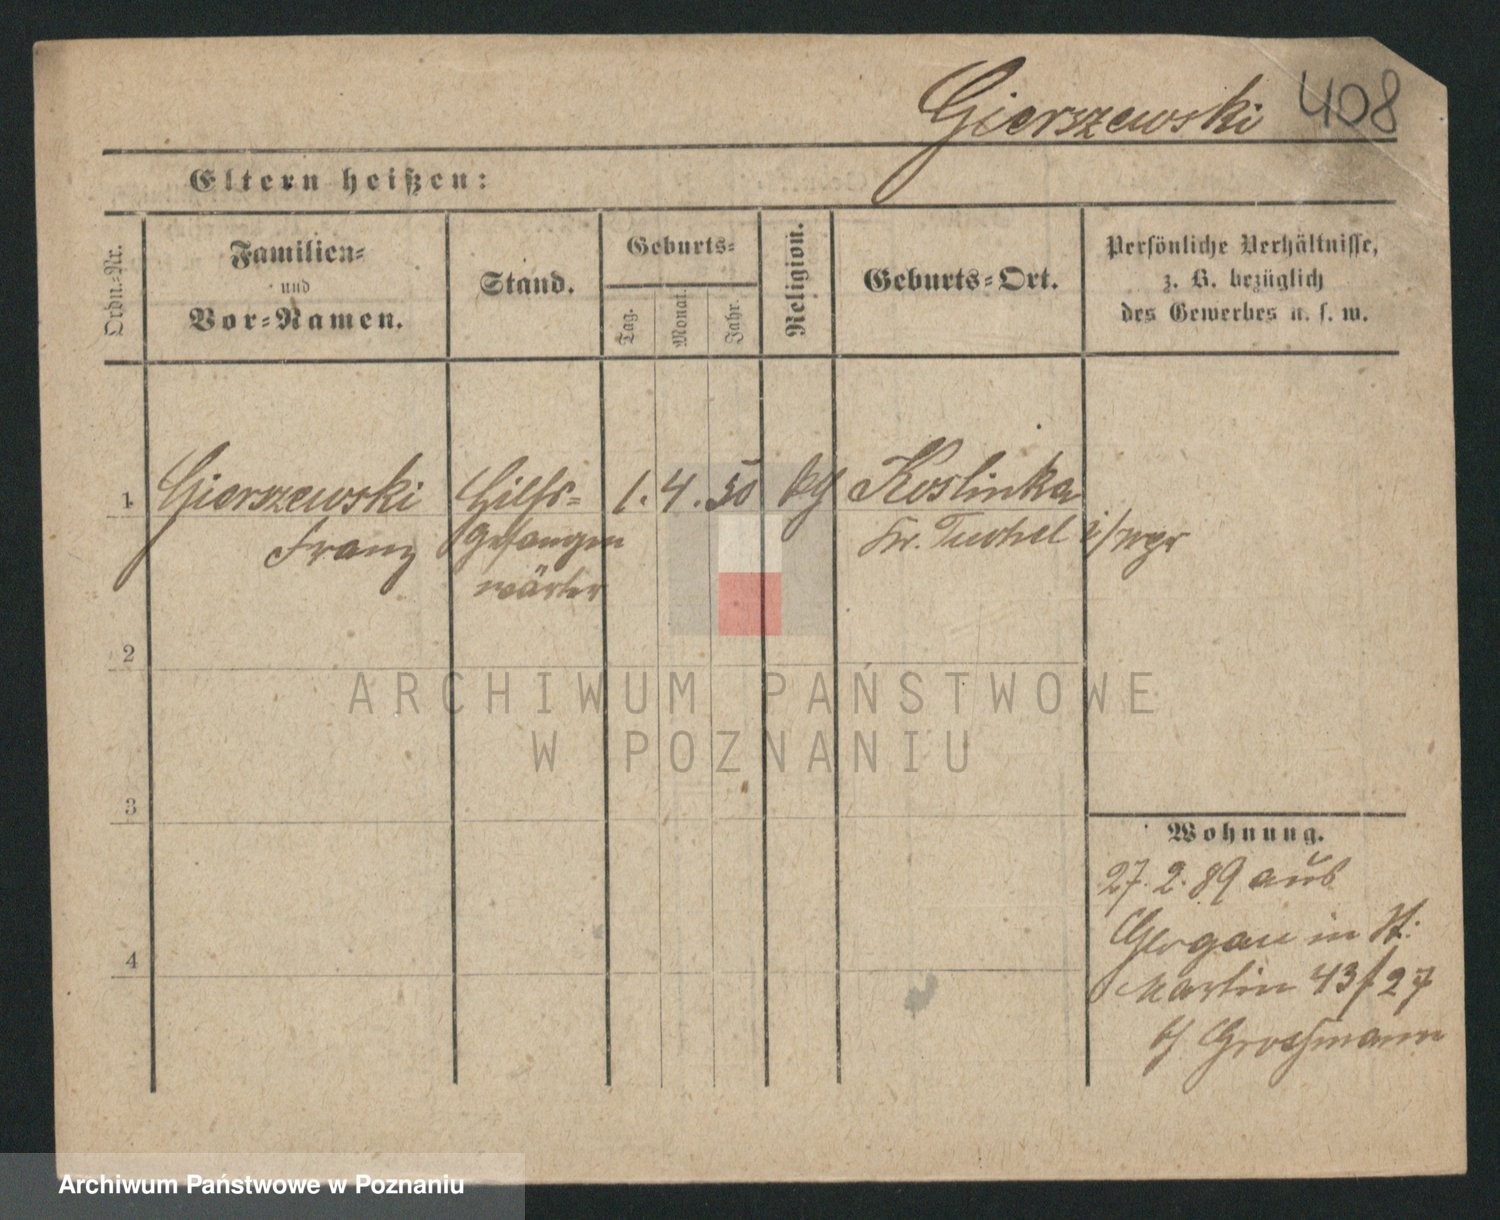 Gierszewski 408
Eltern heißen:
Ordn.-Nr.
Familien-
und
Vor-Namen.
Stand.
Geburts-
Tag.
Monat.
Jahr.
Religion.
Geburts-Ort.
Persönliche Verhältnisse,
z. B. bezüglich
des Gewerbes u. s. w.
1 Gierszewski Hilfs- 1. 4. 50 kg Koslinka
Franz Gefangen Kr. Tuchel i/wpr
wärter
2
3
4
Wohnung.
27. 2. 89 aus
Glogau in St.
Martin 43/27
b/ Großmann
ARCHIWUM PAŃSTWOWE
W POZNANIU
Archiwum Państwowe w Poznaniu